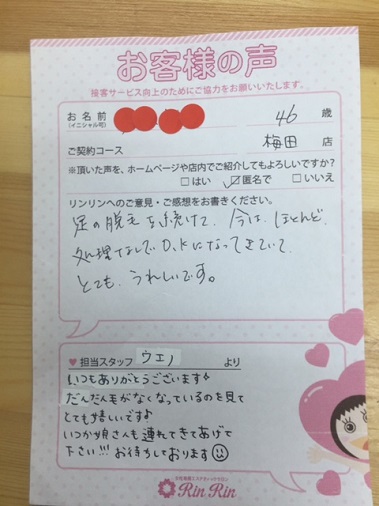 お客様の声
接客サービス向上のためにご協力をお願いいたします。
お名前
(イニシャル可)
46 歳
ご契約コース
梅田 店
※頂いた声を、ホームページや店内でご紹介してもよろしいですか?
□はい ☑匿名で □いいえ
リンリンへのご意見・ご感想をお書きください。
足の脱毛を続けて、今は、ほとんど、
処理なしでO.Kになってきていて、
とても、うれしいです。
♥担当スタッフ ウエノ より
いつもありがとうございます♪
だんだん毛がなくなっているのを見て
とても嬉しいです♪
いつか娘さんも連れてきてあげて
下さい!!! お待ちしております☺
Rin Rin